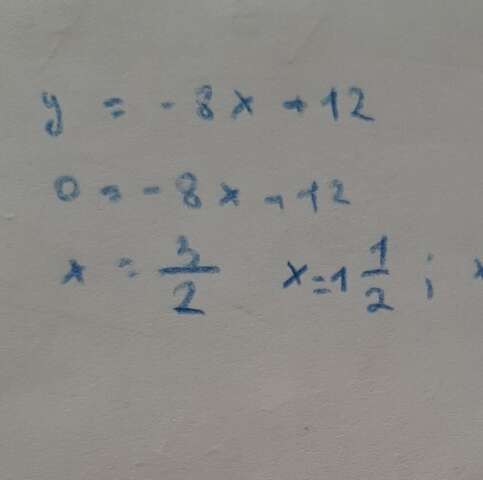 y = -8x + 12
0 = -8x + 12
x = 3/2 x = 1 1/2 ; x